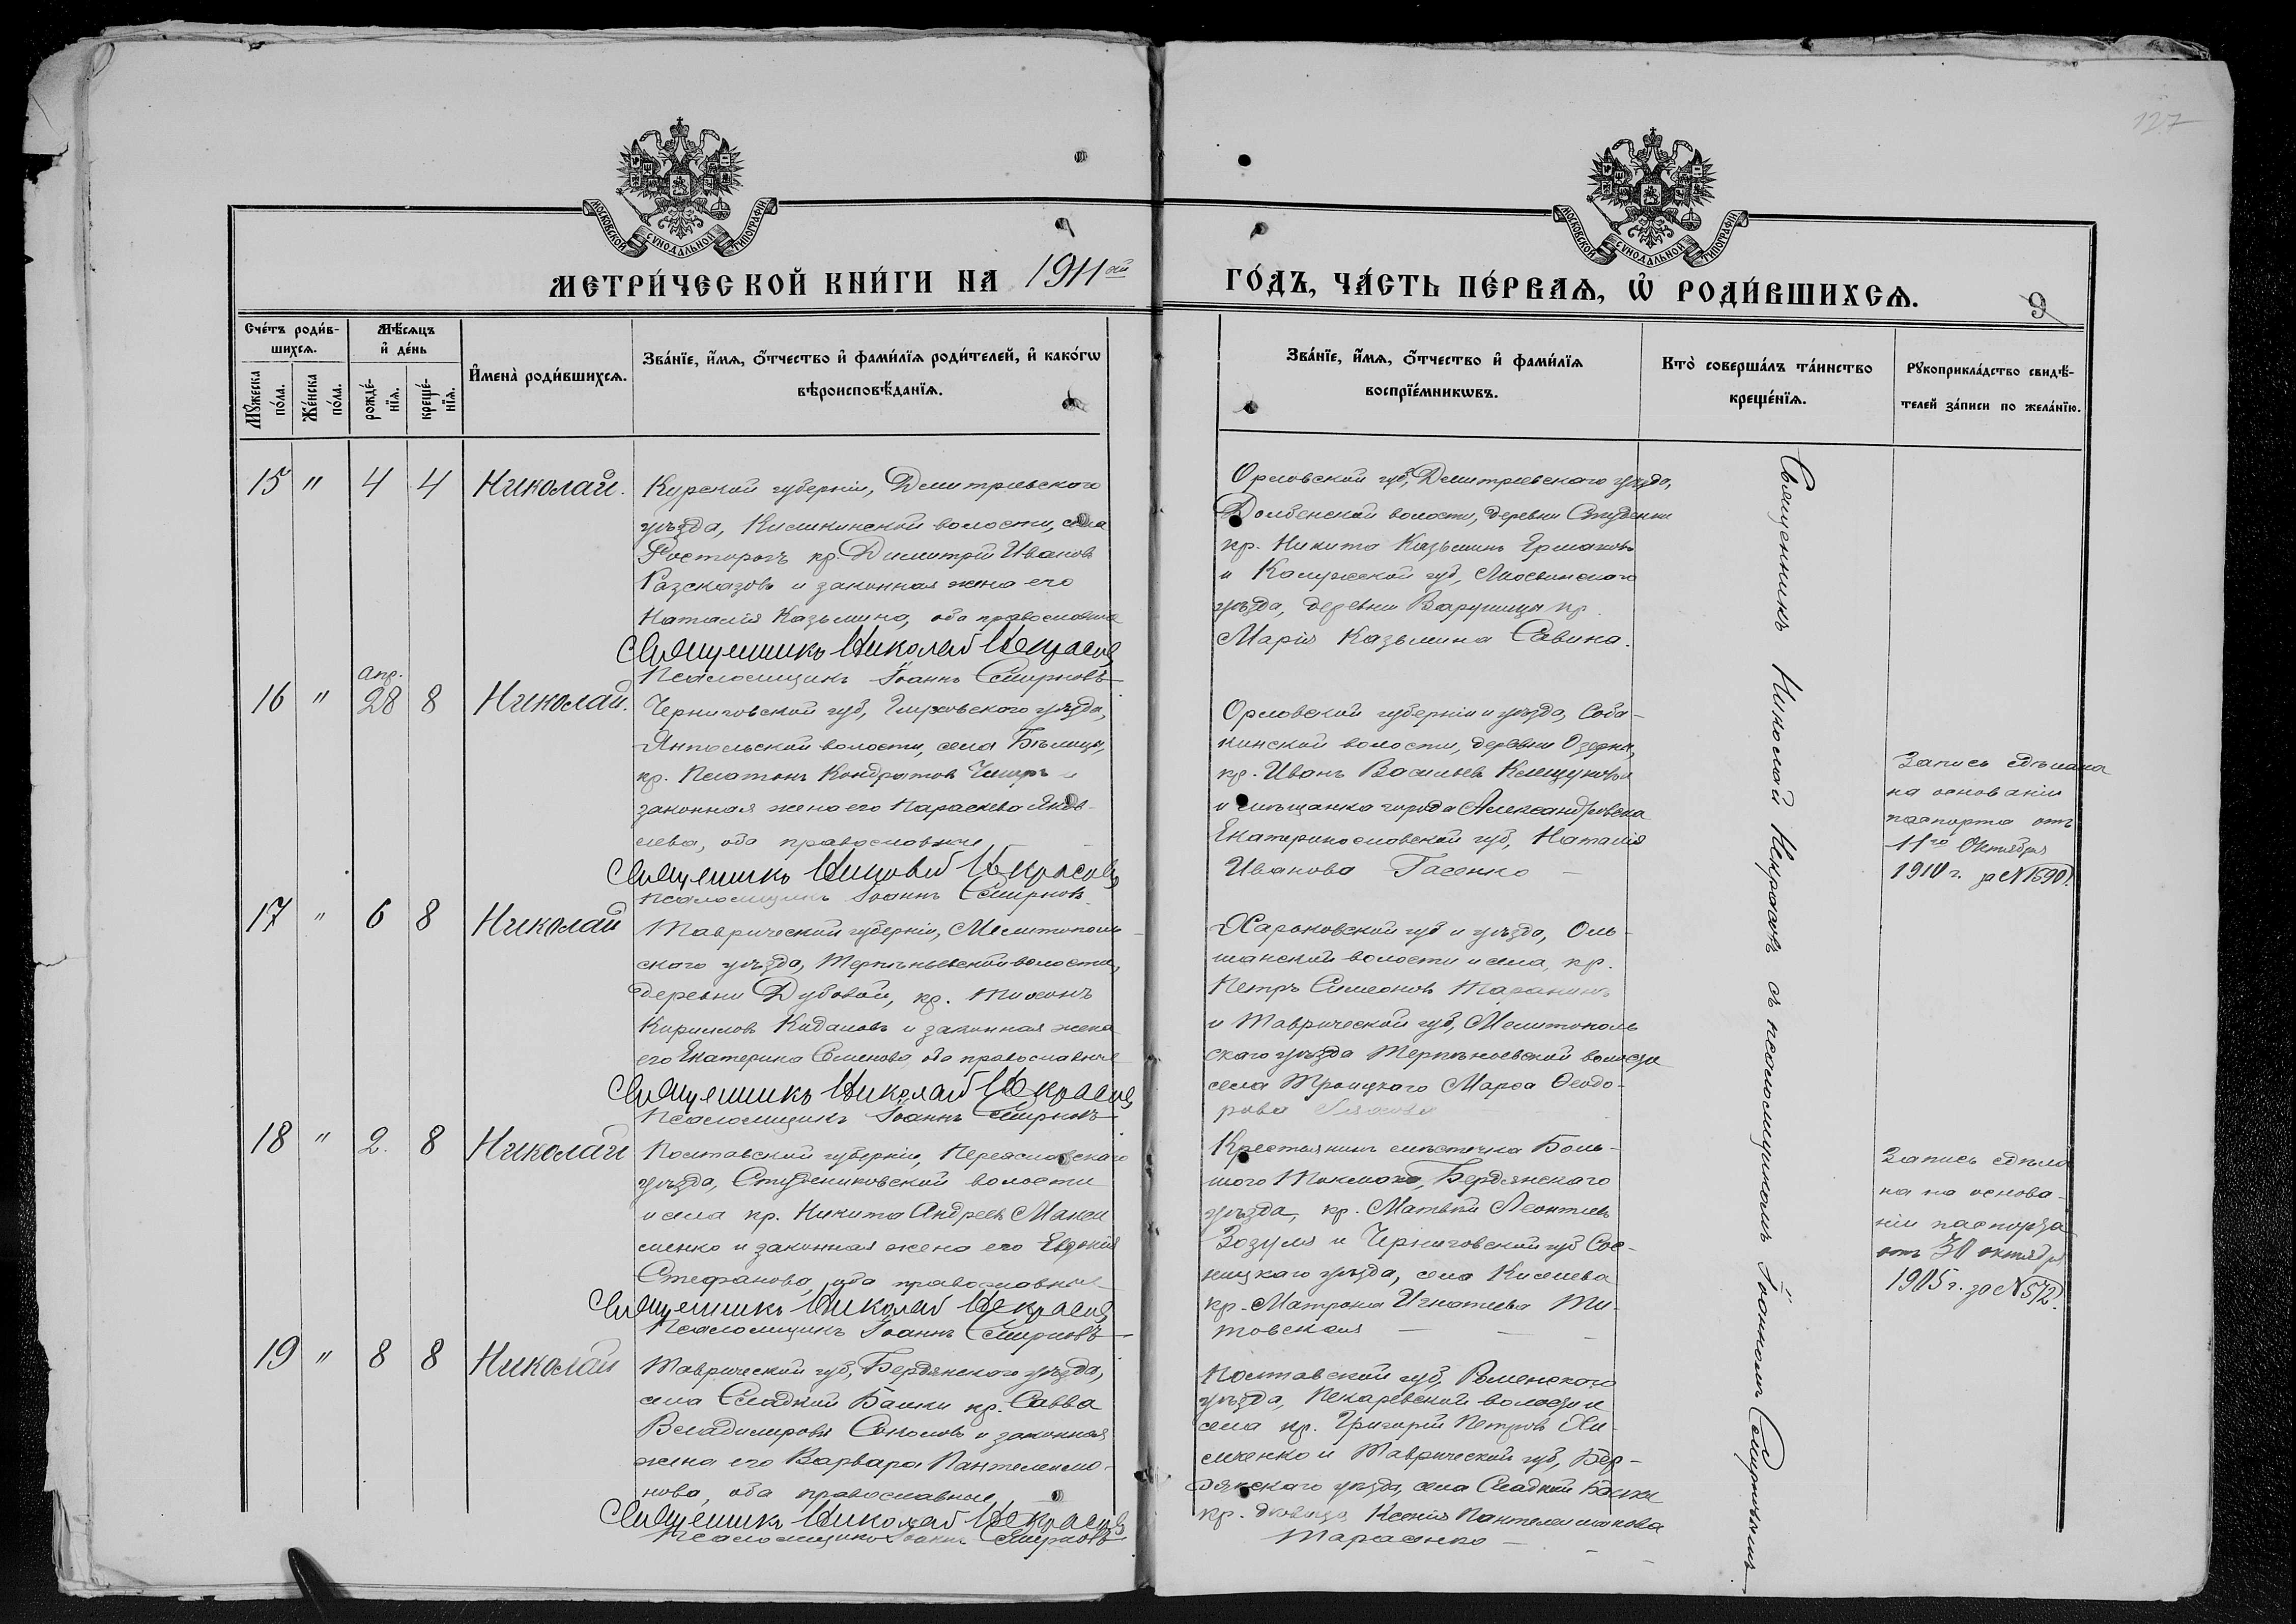 127
МОСКОВСКОЙ СУНОДАЛЬНОЙ ТИПОГРАФІИ
МОСКОВСКОЙ СУНОДАЛЬНОЙ ТИПОГРАФІИ
МЕТРИ́ЧЕСКОЙ КНИ́ГИ НА 1911ый
ГО́ДЪ, ЧА́СТЬ ПЕ́РВАѦ, Ѡ҆ РОДИ́ВШИХСѦ.
9
Сче́тъ роди́в-
шихсѧ.
Мѣ́сѧцъ
и҆ де́нь
Мꙋ́жеска
по́ла.
Же́нска
по́ла.
рожде́-
нїѧ.
креще́-
нїѧ.
И҆мена̀ роди́вшихсѧ.
Зва́нїе, и҆́мѧ, о҆́тчество и҆ фами́лїѧ роди́телей, и҆ како́гѡ
вѣроисповѣ́данїѧ.
Зва́нїе, и҆́мѧ, о҆́тчество и҆ фами́лїѧ
воспрїе́мникѡвъ.
Кто̀ соверша́лъ та́инство
креще́нїѧ.
Рꙋкоприкла́дство свидѣ́-
телей за́писи по жела́нїю.
15 " 4 4 Николай.
Курской губерніи, Дмитріевского
уѣзда, волости, села
кр. Димитрій Иванов
Разсказовъ и законная жена его
Наталія Казьмина, оба православные
Священникъ Николай Некрасовъ
Псаломщикъ Іоаннъ Смирновъ
Орловской губ, Дмитріевскаго уѣзда,
волости, деревни Студенки
кр. Никита Казьминъ Ермаковъ
и Калужской губ,
уѣзда, деревни кр.
Марія Казьмина Савина.
16 " апр. 28 8 Николай.
Черниговской губ, Глуховского уѣзда,
Янпольской волости, села Бѣлицы,
кр. Платонъ Кондратовъ и
законная жена его Параскева Яков-
лева, оба православные
Священникъ Николай Некрасовъ
Псаломщикъ Іоаннъ Смирновъ
Орловской губерніи и уѣзда, Соба-
кинской волости, деревни Озерки,
кр. Иванъ Васильевъ
и мѣщанка города Александровска
Екатеринославской губ, Наталія
Иванова Гасенко
Запись сдѣлана
на основаніи
паспорта отъ
11го Октября
1910 г. за № 1590.
17 " 6 8 Николай
Таврической губерніи, Мелитополь-
ского уѣзда, Терпѣньевской волости,
деревни Дубовой, кр. Тихонъ
Кириловъ Кидаловъ и законная жена
его Екатерина Семенова, оба православные
Священникъ Николай Некрасовъ
Псаломщикъ Іоаннъ Смирновъ
Харьковской губ и уѣзда, Оль-
шанской волости и села, кр.
Петръ Симеоновъ
и Таврической губ, Мелитополь
скаго уѣзда Терпѣньевской волости
села Троицкаго Марѳа Ѳеодо-
рова
18 " 2. 8 Николай
Полтавской губерніи, Переяславскаго
уѣзда, Студениковской волости
и села кр. Никита Андреевъ Макси
менко и законная жена его Евдокія
Стефанова, оба православные
Священникъ Николай Некрасовъ
Псаломщикъ Іоаннъ Смирновъ
Крестьянинъ мѣстечка Боль-
шого Токмака, Бердянскаго
уѣзда, кр. Матвѣй Леонтьевъ
Зозуля и Черниговской губ Сос-
ницкаго уѣзда, села Киселева
кр. Матрона Игнатьева Ти-
товская
Запись сдѣла
на на основа-
ніи паспорта
отъ 30 октября
1905 г. за № 572.
19 " 8 8 Николай
Таврической губ, Бердянского уѣзда,
села Сладкой Балки кр. Савва
Владимировъ Соколовъ и законная
жена его Варвара Пантелеимо-
нова, оба православные
Священникъ Николай Некрасовъ
Псаломщикъ Іоаннъ Смирновъ
Полтавской губ, Роменского
уѣзда, Пекаревской волости
села кр. Григорій Петровъ Хи-
мченко и Таврической губ, Бер-
дянскаго уѣзда, села Сладкой Балки
кр. дѣвица Ксенія Пантелеимонова
Тарасенко
Священникъ Николай Некрасовъ съ псаломщикомъ Іоанномъ Смирновымъ